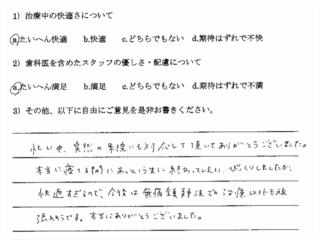 1) 治療中の快適さについて
a.たいへん快適 b.快適 c.どちらでもない d.期待はずれで不快
2) 歯科医を含めたスタッフの優しさ・配慮について
a.たいへん満足 b.満足 c.どちらでもない d.期待はずれで不満
3) その他、以下に自由にご意見を是非お書きください。
忙しい中、突然の来院にも対応して頂いてありがとうございました。
本当に寝てる間にあっという間に終わってしまい、びっくりしましたが、
快適すぎるので、今後は無痛 治療以外も
頑張れそうです。本当にありがとうございました。